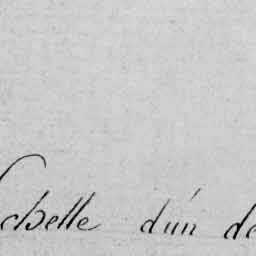 Echelle d'un de